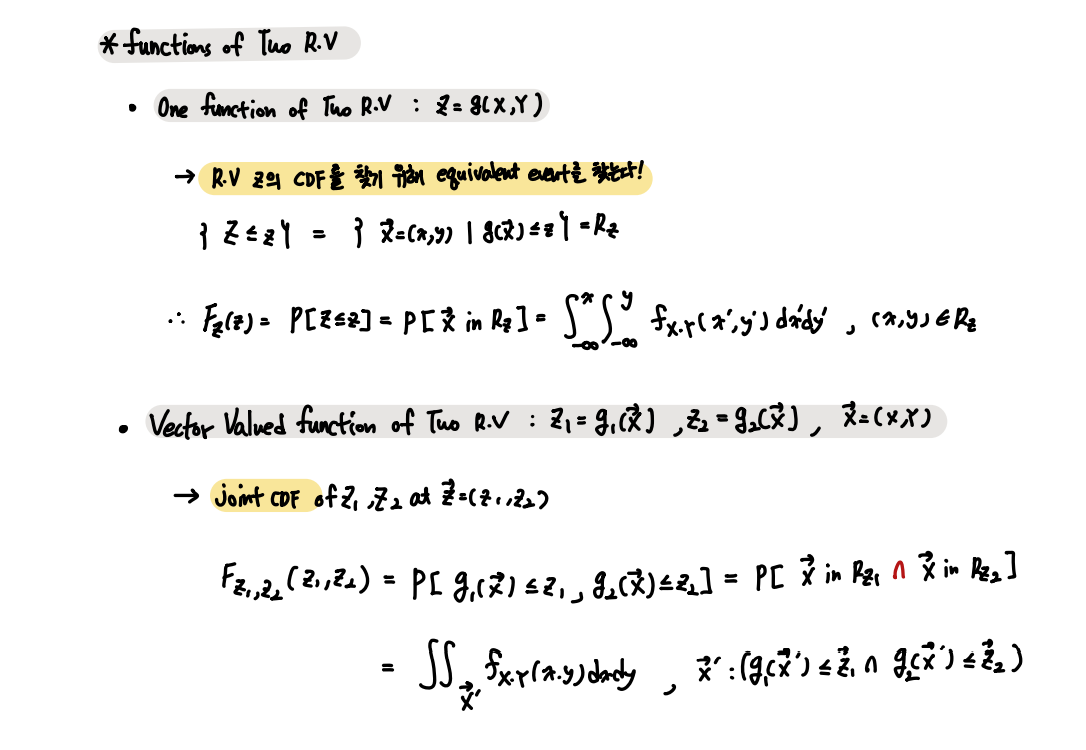 * functions of Two R.V
• One function of Two R.V : Z = g(X,Y)
→ R.V Z의 CDF를 찾기 위해 equivalent event를 찾는다!
{ Z ≤ z } = { x⃗=(x,y) | g(x⃗) ≤ z } = R_z
∴ F_Z(z) = P[Z≤z] = P[ x⃗ in R_z ] = ∫_{-∞}^{x} ∫_{-∞}^{y} f_{X.Y}(x′,y′) dx′dy′ , (x,y) ∈ R_z
• Vector Valued function of Two R.V : Z₁ = g₁(x⃗) , Z₂ = g₂(x⃗) , x⃗ = (X,Y)
→ joint CDF of Z₁ , Z₂ at z⃗ = (z₁,z₂)
F_{Z₁,Z₂}(z₁,z₂) = P[ g₁(x⃗) ≤ z₁ , g₂(x⃗) ≤ z₂ ] = P[ x⃗ in R_{z₁} ∩ x⃗ in R_{z₂} ]
= ∬_{x⃗′} f_{X.Y}(x.y) dxdy , x⃗′ : (g₁(x⃗′) ≤ z⃗₁ ∩ g₂(x⃗′) ≤ z⃗₂)